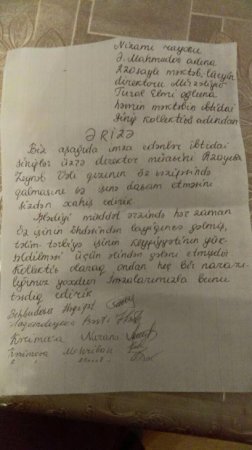 Nizami rayonu
Ə. Mahmudov adına
220 saylı məktəb-liseyin
direktoru
Tural Elmi oğluna
həmin məktəbin ibtidai
sinif kollektivi adından
ƏRİZƏ
Biz aşağıda imza edənlər ibtidai
siniflər üzrə direktor müavini Rzayeva
Zeynəb Vəli qızının öz vəzifəsində
qalmasını və işinə davam etməsini
sizdən xahiş edirik
İşlədiyi müddət ərzində hər zaman
öz işinin öhdəsindən layiqincə gəlmiş,
təlim-tərbiyə işinin keyfiyyətinin yük-
səldilməsi üçün əlindən gələni etmişdir
Kollektiv olaraq ondan heç bir narazı-
lığımız yoxdur. İmzalarımızla bunu
təsdiq edirik
Behbudova
Kərimova Nuranə
Mehriban